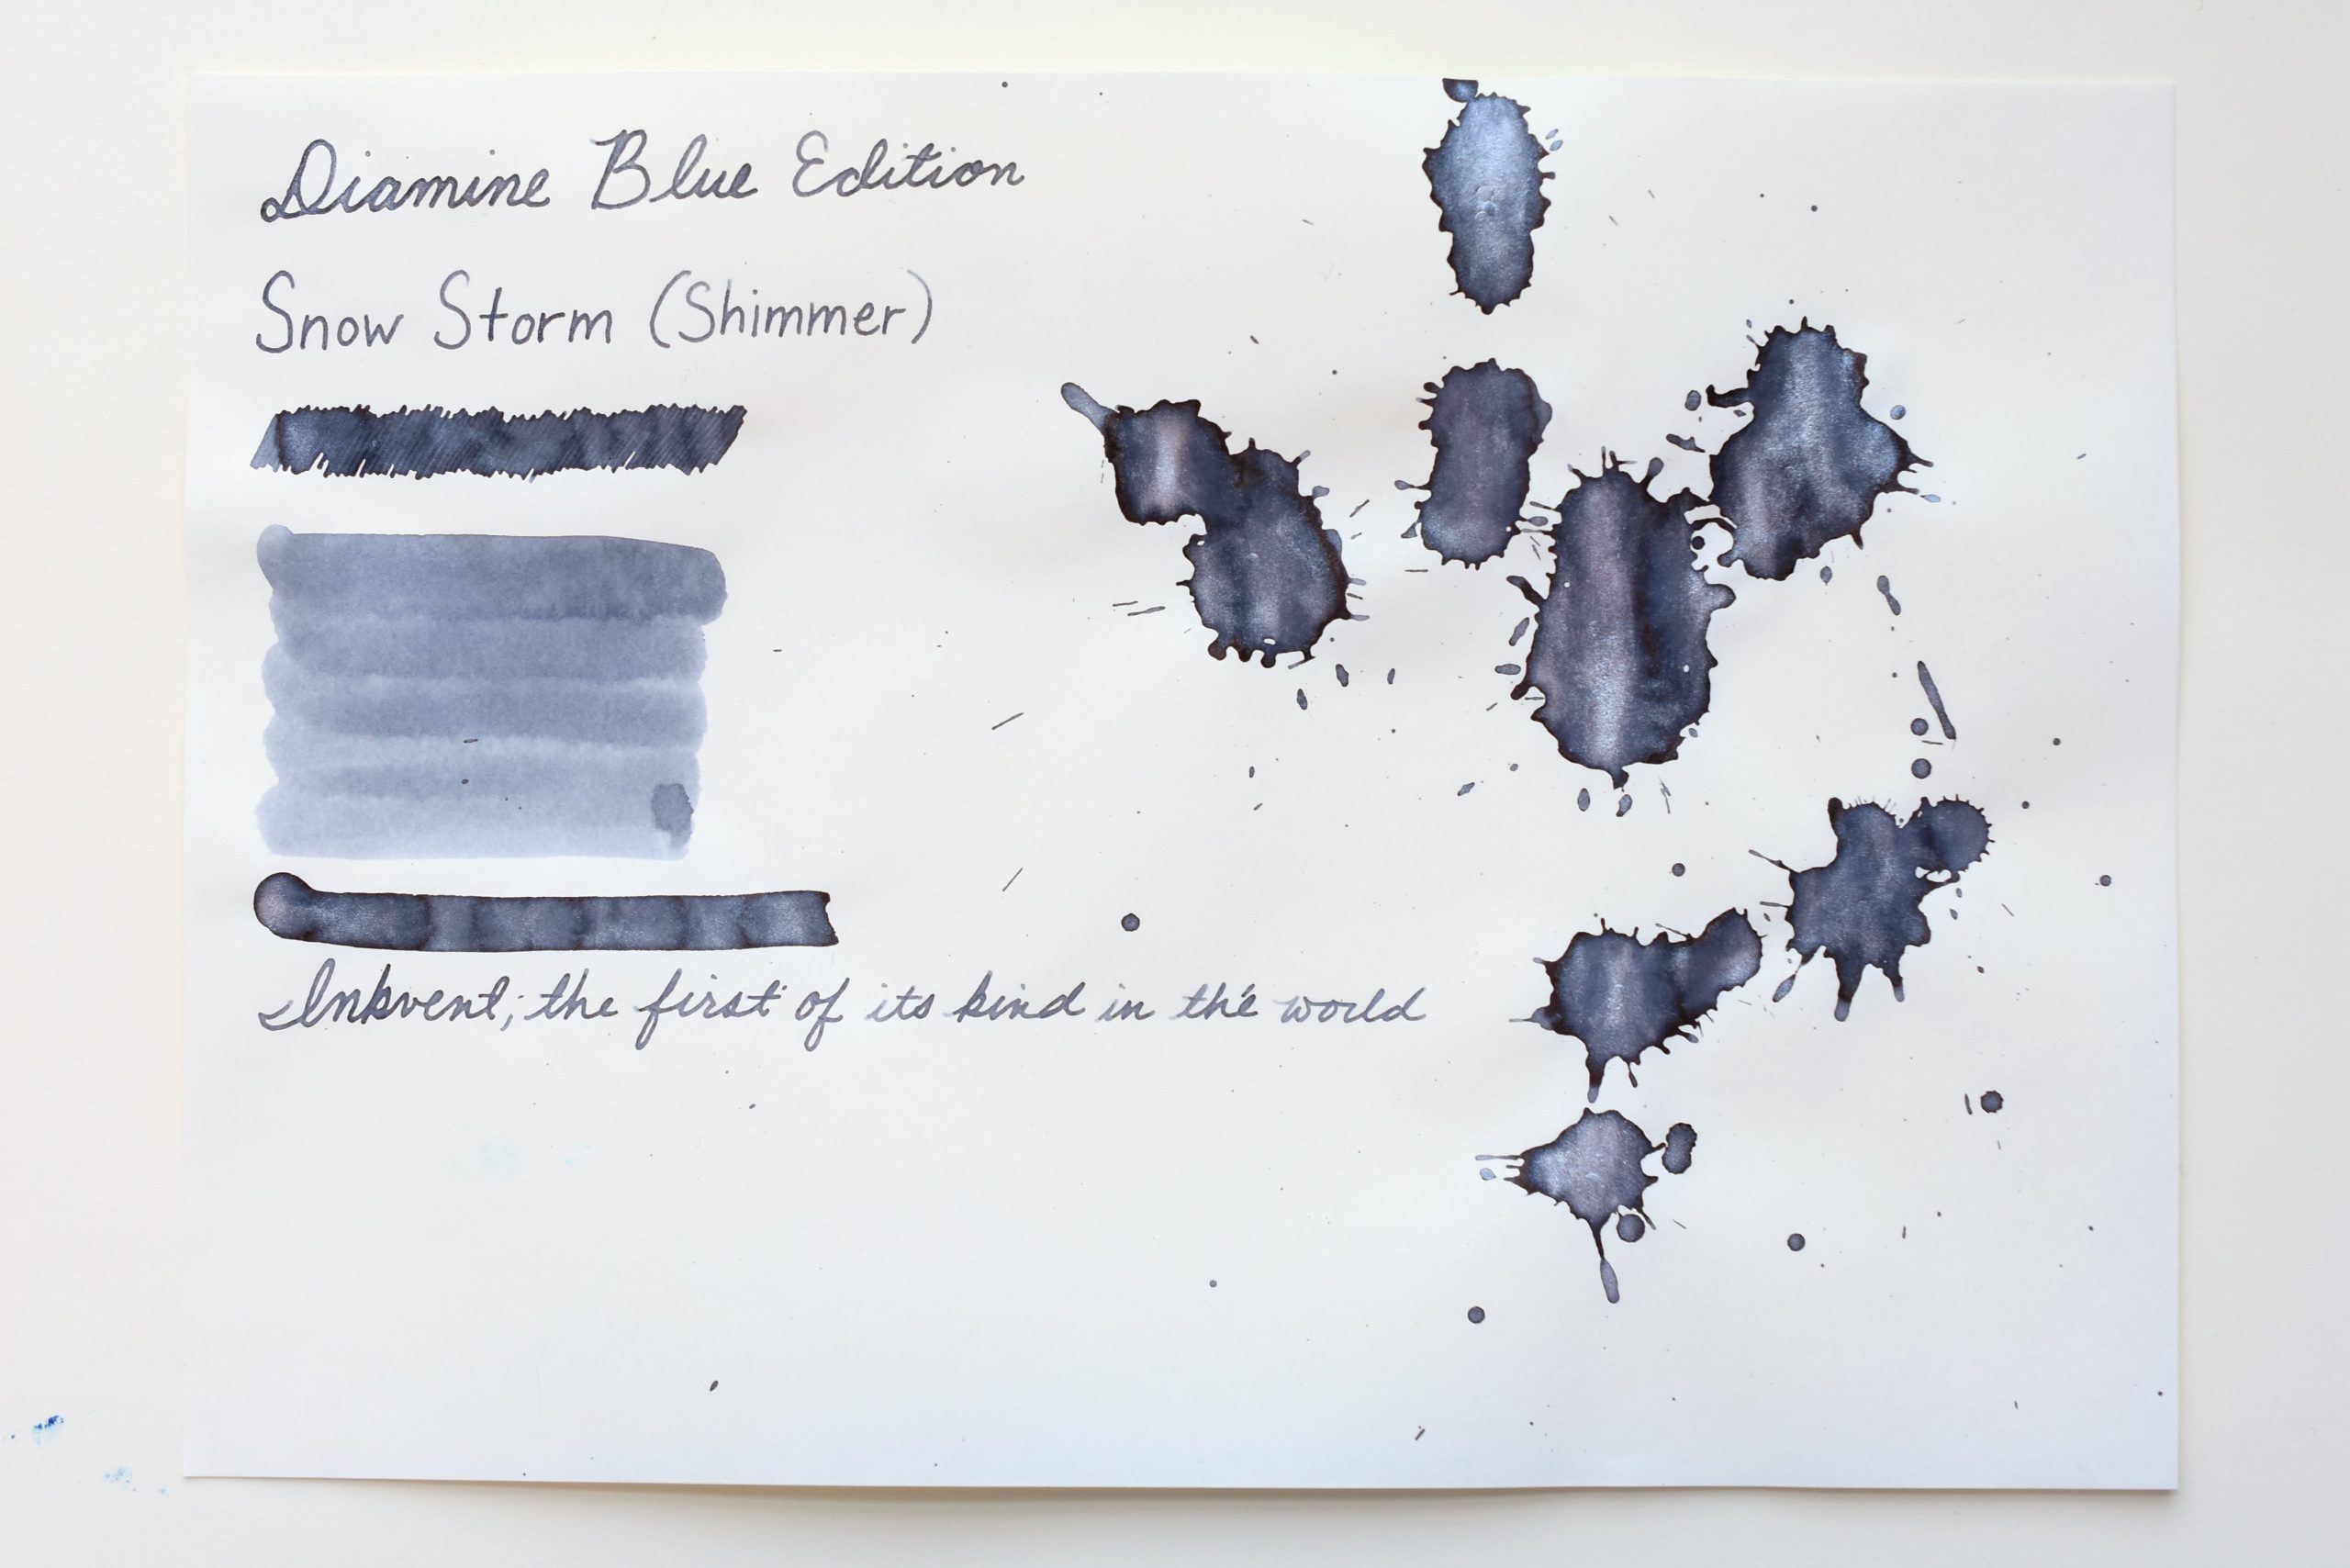 Diamine Blue Edition
Snow Storm (Shimmer)
Inkvent; the first of its kind in the world